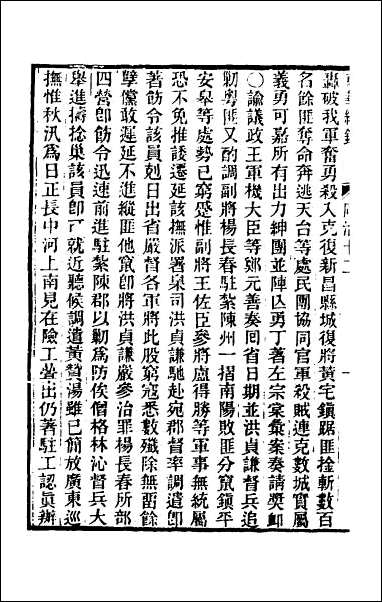 轟破我軍奮勇殺入克復新昌縣城復將黃宅鎮踞匪捦斬數百
名餘匪奪命奔逃天台等處民團協同官軍殺賊連克數城實屬
義勇可嘉所有出力紳團並陣亡勇丁著左宗棠彙案奏請獎卹
○諭議政王軍機大臣等鄭元善奏回省日期並洪貞謙督兵追
勦粵匪又酌調副將楊長春駐紮陳州一摺南陽敗匪分竄鎮平
安皋等處勢已窮蹙惟副將王佐臣參將盧得勝等軍事無統屬
恐不免推諉遷延該撫派署臬司洪貞謙馳赴宛郡督率調遣卽
著飭令該員剋日出省嚴督各軍將此股窮寇悉數殲除無畱餘
孽儻敢遲延不進縱匪他竄卽將洪貞謙嚴參治罪楊長春所部
四營卽飭令迅速前進駐紮陳郡以勦爲防俟僧格林沁督兵大
舉進擣捻巢該員卽可就近聽候調遣黃贊湯雖已簡放廣東巡
撫惟秋汛爲日正長中河上南見在險工壘出仍著駐工認眞辦